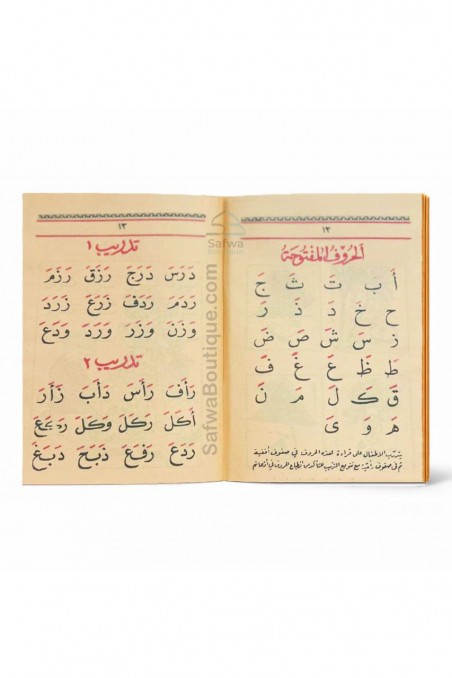 ١٢
الحروف المفتوحة
أَ بَ تَ ثَ جَ
حَ خَ دَ ذَ رَ
زَ سَ شَ صَ ضَ
طَ ظَ عَ غَ فَ
قَ كَ لَ مَ نَ
هَ وَ ىَ
يتدرب الأطفال على قراءة هذه الحروف في صفوف أفقية
ثم في صفوف رأسية مع تنويع الترتيب للتأكد من انطباع الحروف في أذهانهم
١٣
تدريب ١
دَرَسَ دَرَجَ رَزَقَ رَزَمَ
رَدَمَ رَدَفَ زَرَعَ زَرَدَ
وَزَنَ وَزَرَ وَرَدَ وَدَعَ
تدريب ٢
رَأَفَ رَأَسَ دَأَبَ زَأَرَ
أَكَلَ رَكَلَ وَكَلَ
رَدَعَ رَفَعَ ذَبَحَ دَبَغَ
Safwa
SafwaBoutique.com